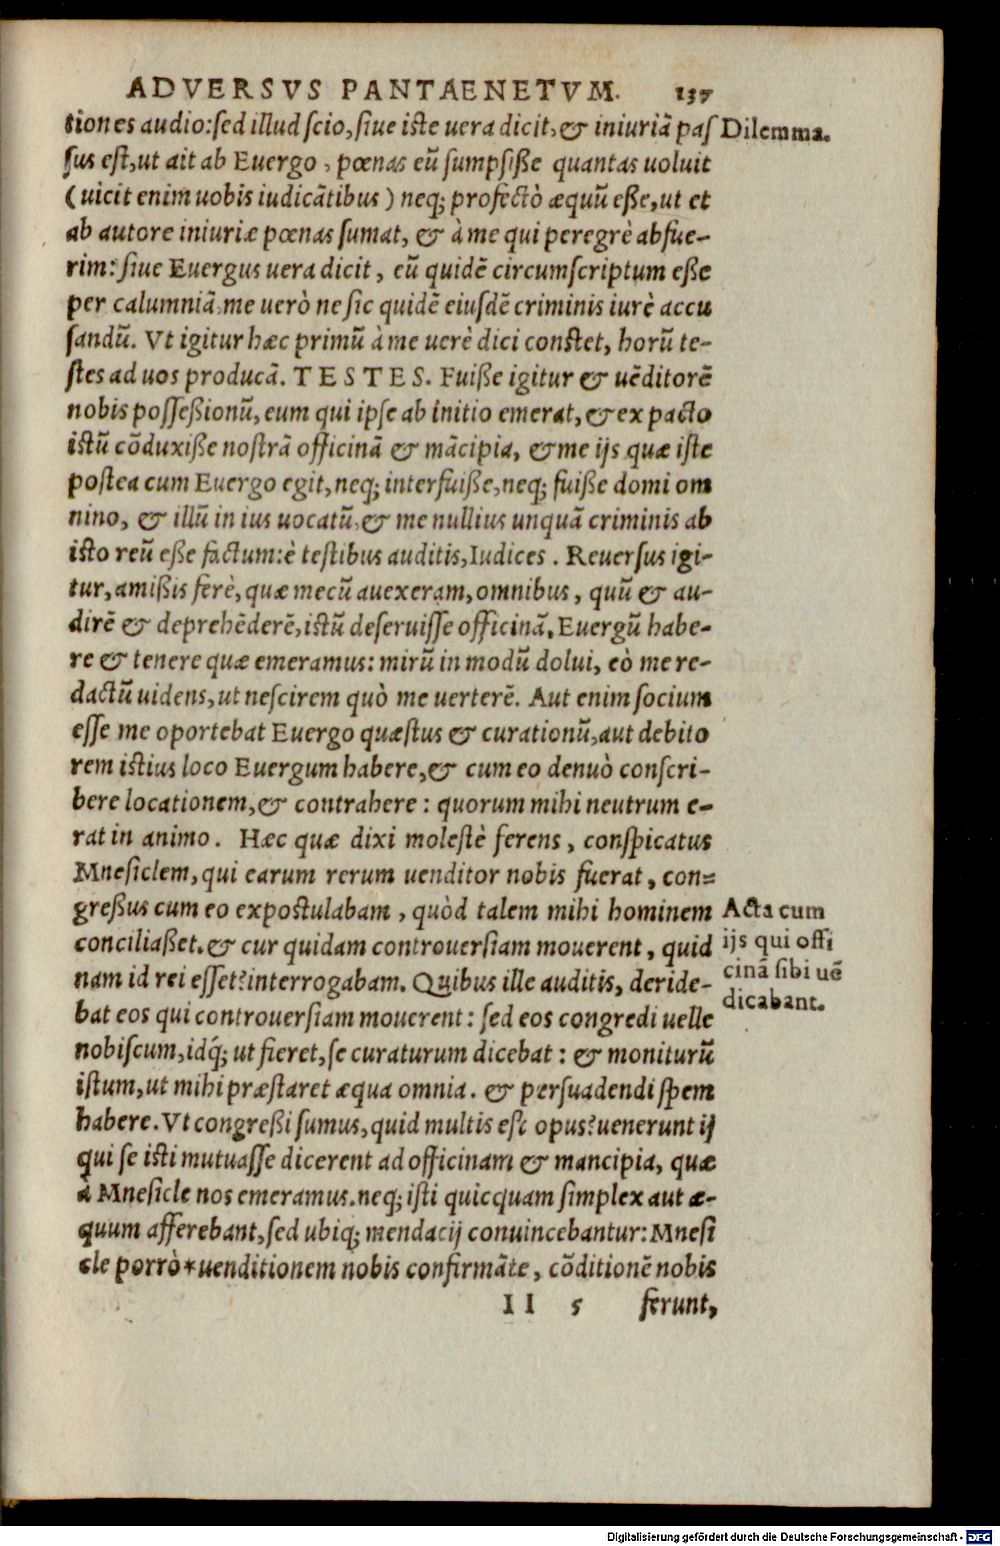 ADVERSVS PANTAENETVM. 137
tiones audio: sed illud scio, siue iste uera dicit, & iniuriã pas
Dilemma.
sus est, ut ait ab Euergo, pœnas eũ sumpsiße quantas uoluit
(uicit enim uobis iudicãtibus) neq; profectò æquũ eße, ut et
ab autore iniuriæ pœnas sumat, & à me qui peregrè abfue-
rim: siue Euergus uera dicit, eũ quidẽ circumscriptum eße
per calumniã, me uerò ne sic quidẽ eiusdẽ criminis iurè accu
sandũ. Vt igitur hæc primũ à me uerè dici constet, horũ te-
stes ad uos producã. TESTES. Fuiße igitur & uẽditorẽ
nobis possessionũ, eum qui ipse ab initio emerat, & ex pacto
istũ cõduxiße nostrã officinã & mãcipia, & me ijs quæ iste
postea cum Euergo egit, neq; interfuiße, neq; fuiße domi om
nino, & illũ in ius uocatũ, & me nullius unquã criminis ab
isto reũ eße factum: è testibus auditis, Iudices. Reuersus igi-
tur, amißis ferè, quæ mecũ auexeram, omnibus, quũ & au-
dirẽ & deprehẽderẽ, istũ deseruisse officinã, Euergũ habe-
re & tenere quæ emeramus: mirũ in modũ dolui, eò me re-
dactũ uidens, ut nescirem quò me uerterẽ. Aut enim socium
esse me oportebat Euergo quæstus & curationũ, aut debito
rem istius loco Euergum habere, & cum eo denuò conscri-
bere locationem, & contrahere: quorum mihi neutrum e-
rat in animo. Hæc quæ dixi molestè ferens, conspicatus
Mnesiclem, qui earum rerum uenditor nobis fuerat, con=
greßus cum eo expostulabam, quòd talem mihi hominem
conciliaßet. & cur quidam controuersiam mouerent, quid
nam id rei esset? interrogabam. Quibus ille auditis, deride-
bat eos qui controuersiam mouerent: sed eos congredi uelle
nobiscum, idq́; ut fieret, se curaturum dicebat: & moniturũ
istum, ut mihi præstaret æqua omnia. & persuadendi spem
habere. Vt congreßi sumus, quid multis est opus? uenerunt ij
qui se isti mutuasse dicerent ad officinam & mancipia, quæ
à Mnesicle nos emeramus. neq; isti quicquam simplex aut æ-
quum afferebant, sed ubiq; mendacij conuincebantur: Mnesi
cle porrò * uenditionem nobis confirmãte, cõditionẽ nobis
Acta cum
ijs qui offi
cinã sibi uẽ
dicabant.
II 5 ferunt,
Digitalisierung gefördert durch die Deutsche Forschungsgemeinschaft - DFG